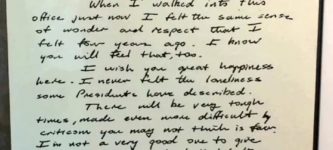 When I walked into this
office just now I felt the same sense
of wonder and respect that I
felt four years ago. I know
you will feel that, too.
I wish you great happiness
here. I never felt the loneliness
some Presidents have described.
There will be very tough
times, made even more difficult by
criticism you may not think is fair.
I'm not a very good one to give